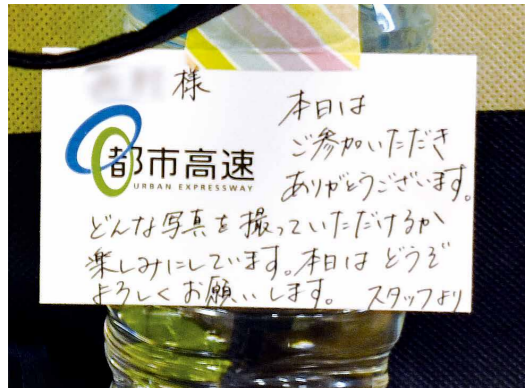 様
都市高速
URBAN EXPRESSWAY
本日は
ご参加いただき
ありがとうございます。
どんな写真を撮っていただけるか
楽しみにしています。本日はどうぞ
よろしくお願いします。 スタッフより